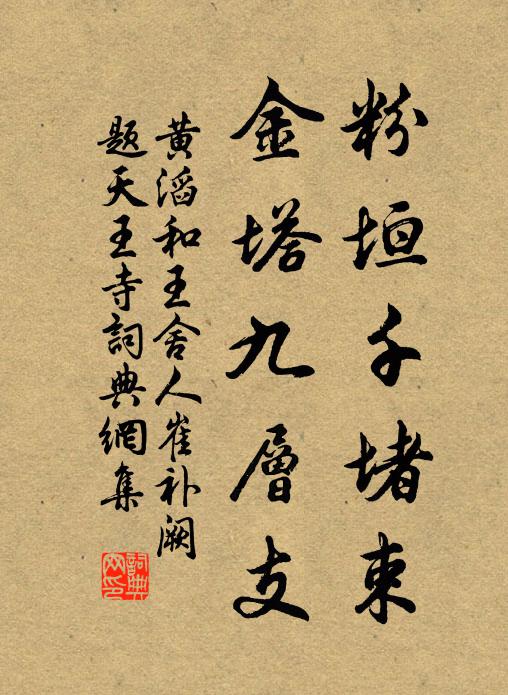 粉垣千堵束
金塔九層支
黄滔和王舍人崔补阙
題天王寺詞典網集
詞典網印